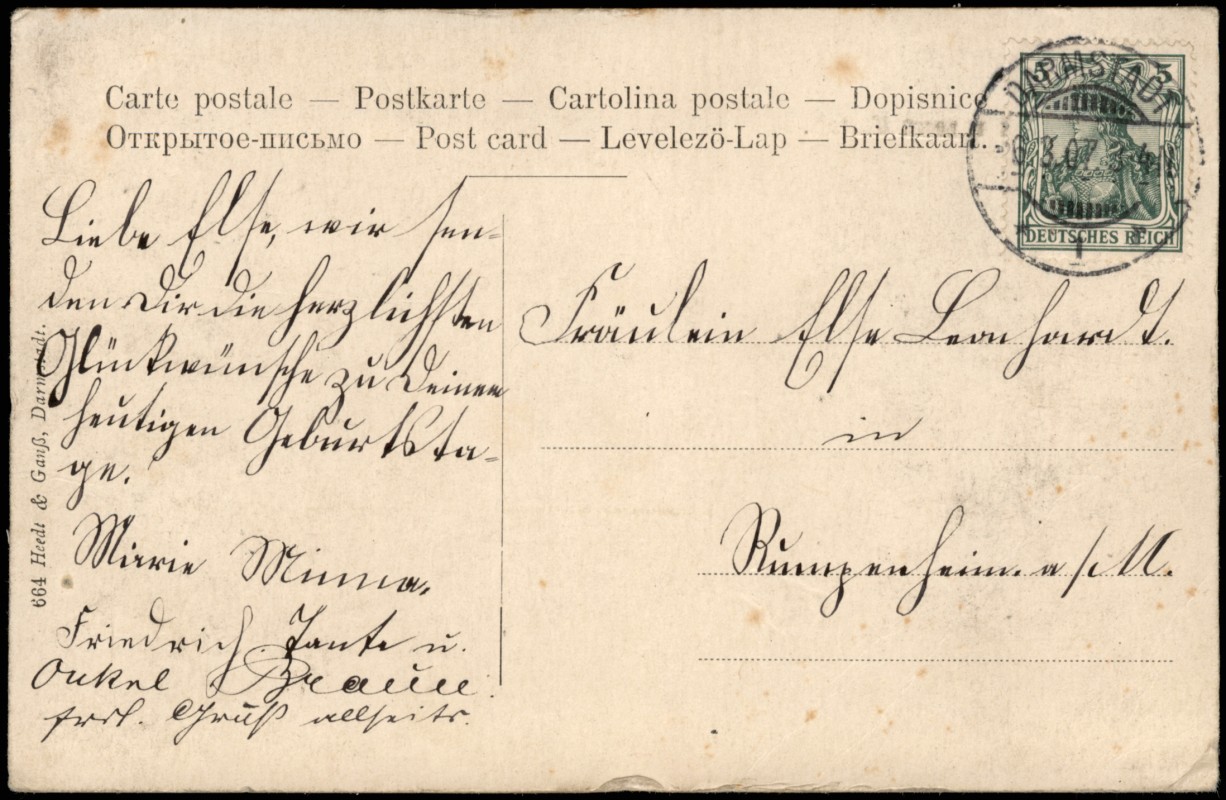 Carte postale — Postkarte — Cartolina postale — Dopisnice
Открытое-письмо — Post card — Levelező-Lap — Briefkaart.
DARMSTADT
3.07. 3-4
5 5
DEUTSCHES REICH
Liebe Else, wir sen-
den Dir die herzlichsten
Glückwünsche zu Deinem
heutigen Geburtsta-
ge.
Marie Minna,
Friedrich. Tante u.
Onkel Braun.
frdl. Gruß allseits.
Fräulein Else Leonhardt.
in
Rumpenheim. a/M.
664 Heedt & Ganß, Darmstadt.